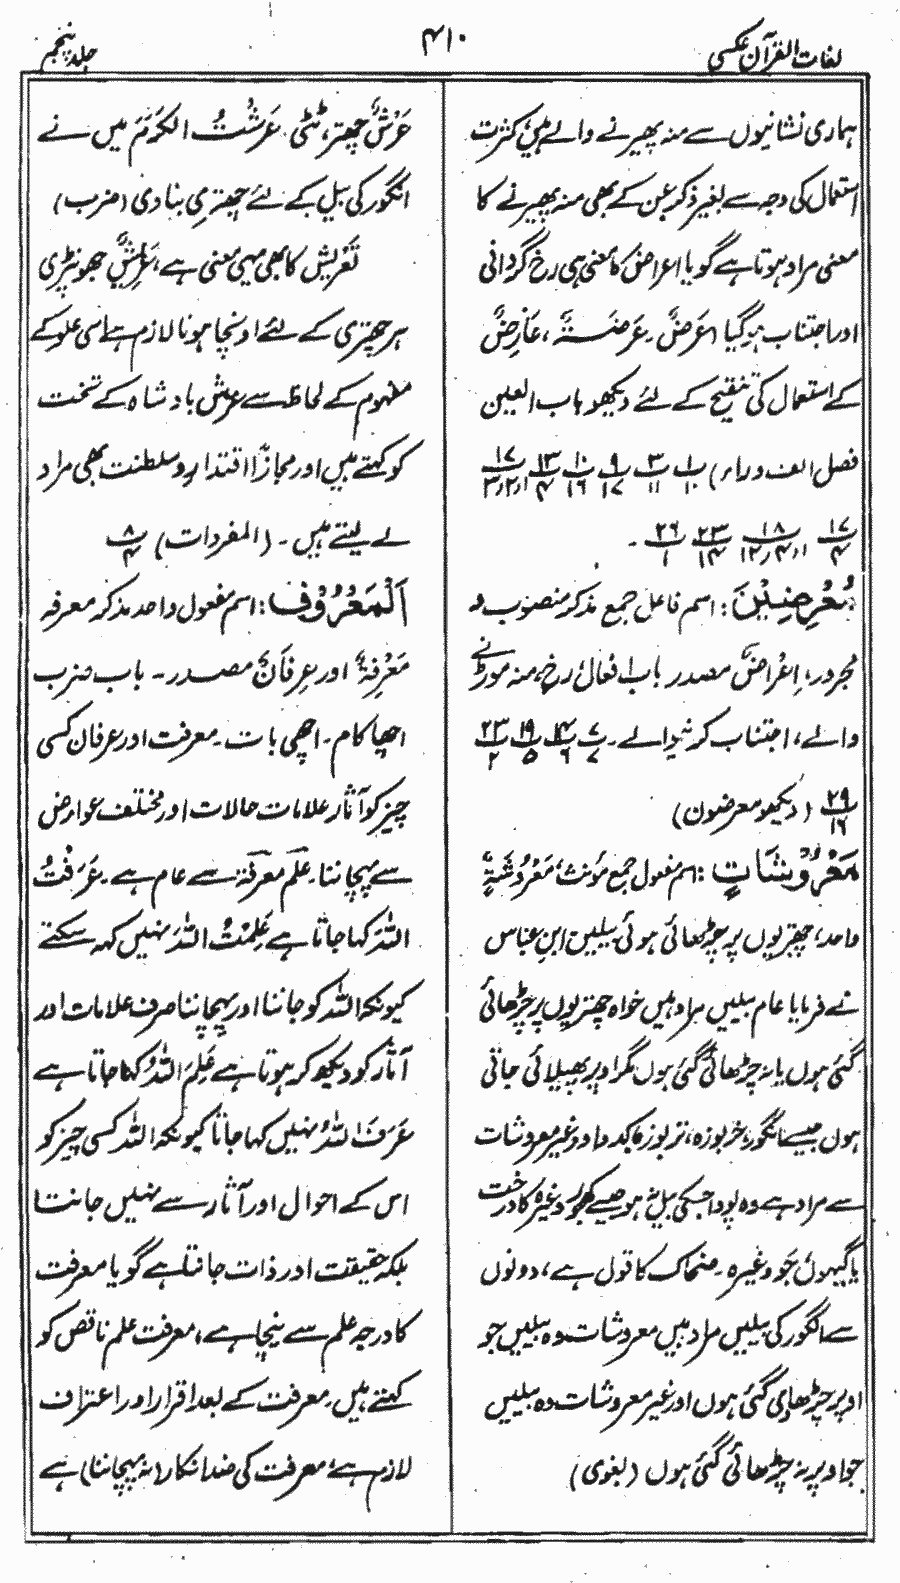 لغات القرآن عکسی
۴۱۰
جلد پنجم
ہماری نشانیوں سے منہ پھیرنے والے ہیں کثرت
استعمال کی وجہ سے بغیر ذکر عن کے بھی منہ پھیرنے کا
معنی مراد ہوتا ہے گویا اعراض کا معنی ہی رخ گردانی
اور اجتناب ہو گیا (عَرَضٌ۔ عَرَضَۃٌ، عَارِضٌ
کے استعمال کی تنقیح کے لئے دیکھو باب العین
فصل الف و راء) ۱/۱۰ ۳/۱۱ ۹/۱۷ ۱۰/۱۶ ۱۳/۴ ۱۷/۱،۲،۳
۱۷/۴ ۱۸/۱،۴،۱۲ ۲۳/۱۴ ۲۶/۱ ۔
مُعْرِضِیْنَ: اسم فاعل جمع مذکر منصوب و
مجرور، اِعْرَاضٌ مصدر باب افعال رخ، منہ موڑنے
والے، اجتناب کرنیوالے۔ ۷/۷ ۱۴/۶ ۱۹/۵ ۲۳/۲
۲۹/۱۶ (دیکھو معرضون)
مَعْرُوْشَاتٍ: اسم مفعول جمع مؤنث، مَعْرُوْشَۃٌ
واحد، چھتریوں پر چڑھائی ہوئی بیلیں ابن عباس
نے فرمایا عام بیلیں مراد ہیں خواہ چھتریوں پر چڑھائی
گئی ہوں یا نہ چڑھائی گئی ہوں مگر اوپر پھیلائی جاتی
ہوں جیسے انگور، خربوزہ، تربوز کدو وغیرہ غیر معروشات
سے مراد ہے وہ پودا جسکی بیل نہ ہو جیسے کھجور وغیرہ کا درخت
یا گیہوں جَو وغیرہ۔ ضحاک کا قول ہے، دونوں
سے انگور کی بیلیں مراد ہیں معروشات وہ بیلیں جو
اوپر چڑھادی گئی ہوں اور غیر معروشات وہ بیلیں
جو اوپر نہ چڑھائی گئی ہوں (بغوی)
عَرْشٌ چھتر، ٹٹی۔ عَرَشْتُ الْکَرْمَ میں نے
انگور کی بیل کے لئے چھتری بنا دی (ضرب)
تَعْرِیْش کا بھی یہی معنی ہے، عَرِیْشٌ جھونپڑی
ہر چھتری کے لئے اونچا ہونا لازم ہے اسی علو کے
مفہوم کے لحاظ سے عرش بادشاہ کے تخت
کو کہتے ہیں اور مجازًا اقتدار و سلطنت بھی مراد
لے لیتے ہیں۔ (المفردات) ۸/۴
اَلْمَعْرُوْف: اسم مفعول واحد مذکر معرفہ
مَعْرِفَۃٌ اور عِرفَانٌ مصدر۔ باب ضرب
اچھا کام۔ اچھی بات۔ معرفت اور عرفان کسی
چیز کو آثار علامات حالات اور مختلف عوارض
سے پہچاننا۔ علم معرفۃ سے عام ہے۔ عَرَفْتُ
اللہَ کہا جاتا ہے عَلِمْتُ اللہَ نہیں کہہ سکتے
کیونکہ اللہ کو جاننا اور پہچاننا صرف علامات اور
آثار کو دیکھ کر ہوتا ہے عَلِمَ اللہُ کہا جاتا ہے
عَرَفَ اللہُ نہیں کہا جاتا کیونکہ اللہ کسی چیز کو
اس کے احوال اور آثار سے نہیں جانتا
بلکہ حقیقت اور ذات جانتا ہے گویا معرفت
کا درجہ علم سے نیچا ہے، معرفت علم ناقص کو
کہتے ہیں۔ معرفت کے بعد اقرار اور اعتراف
لازم ہے، معرفت کی ضد انکار (نہ پہچاننا) ہے